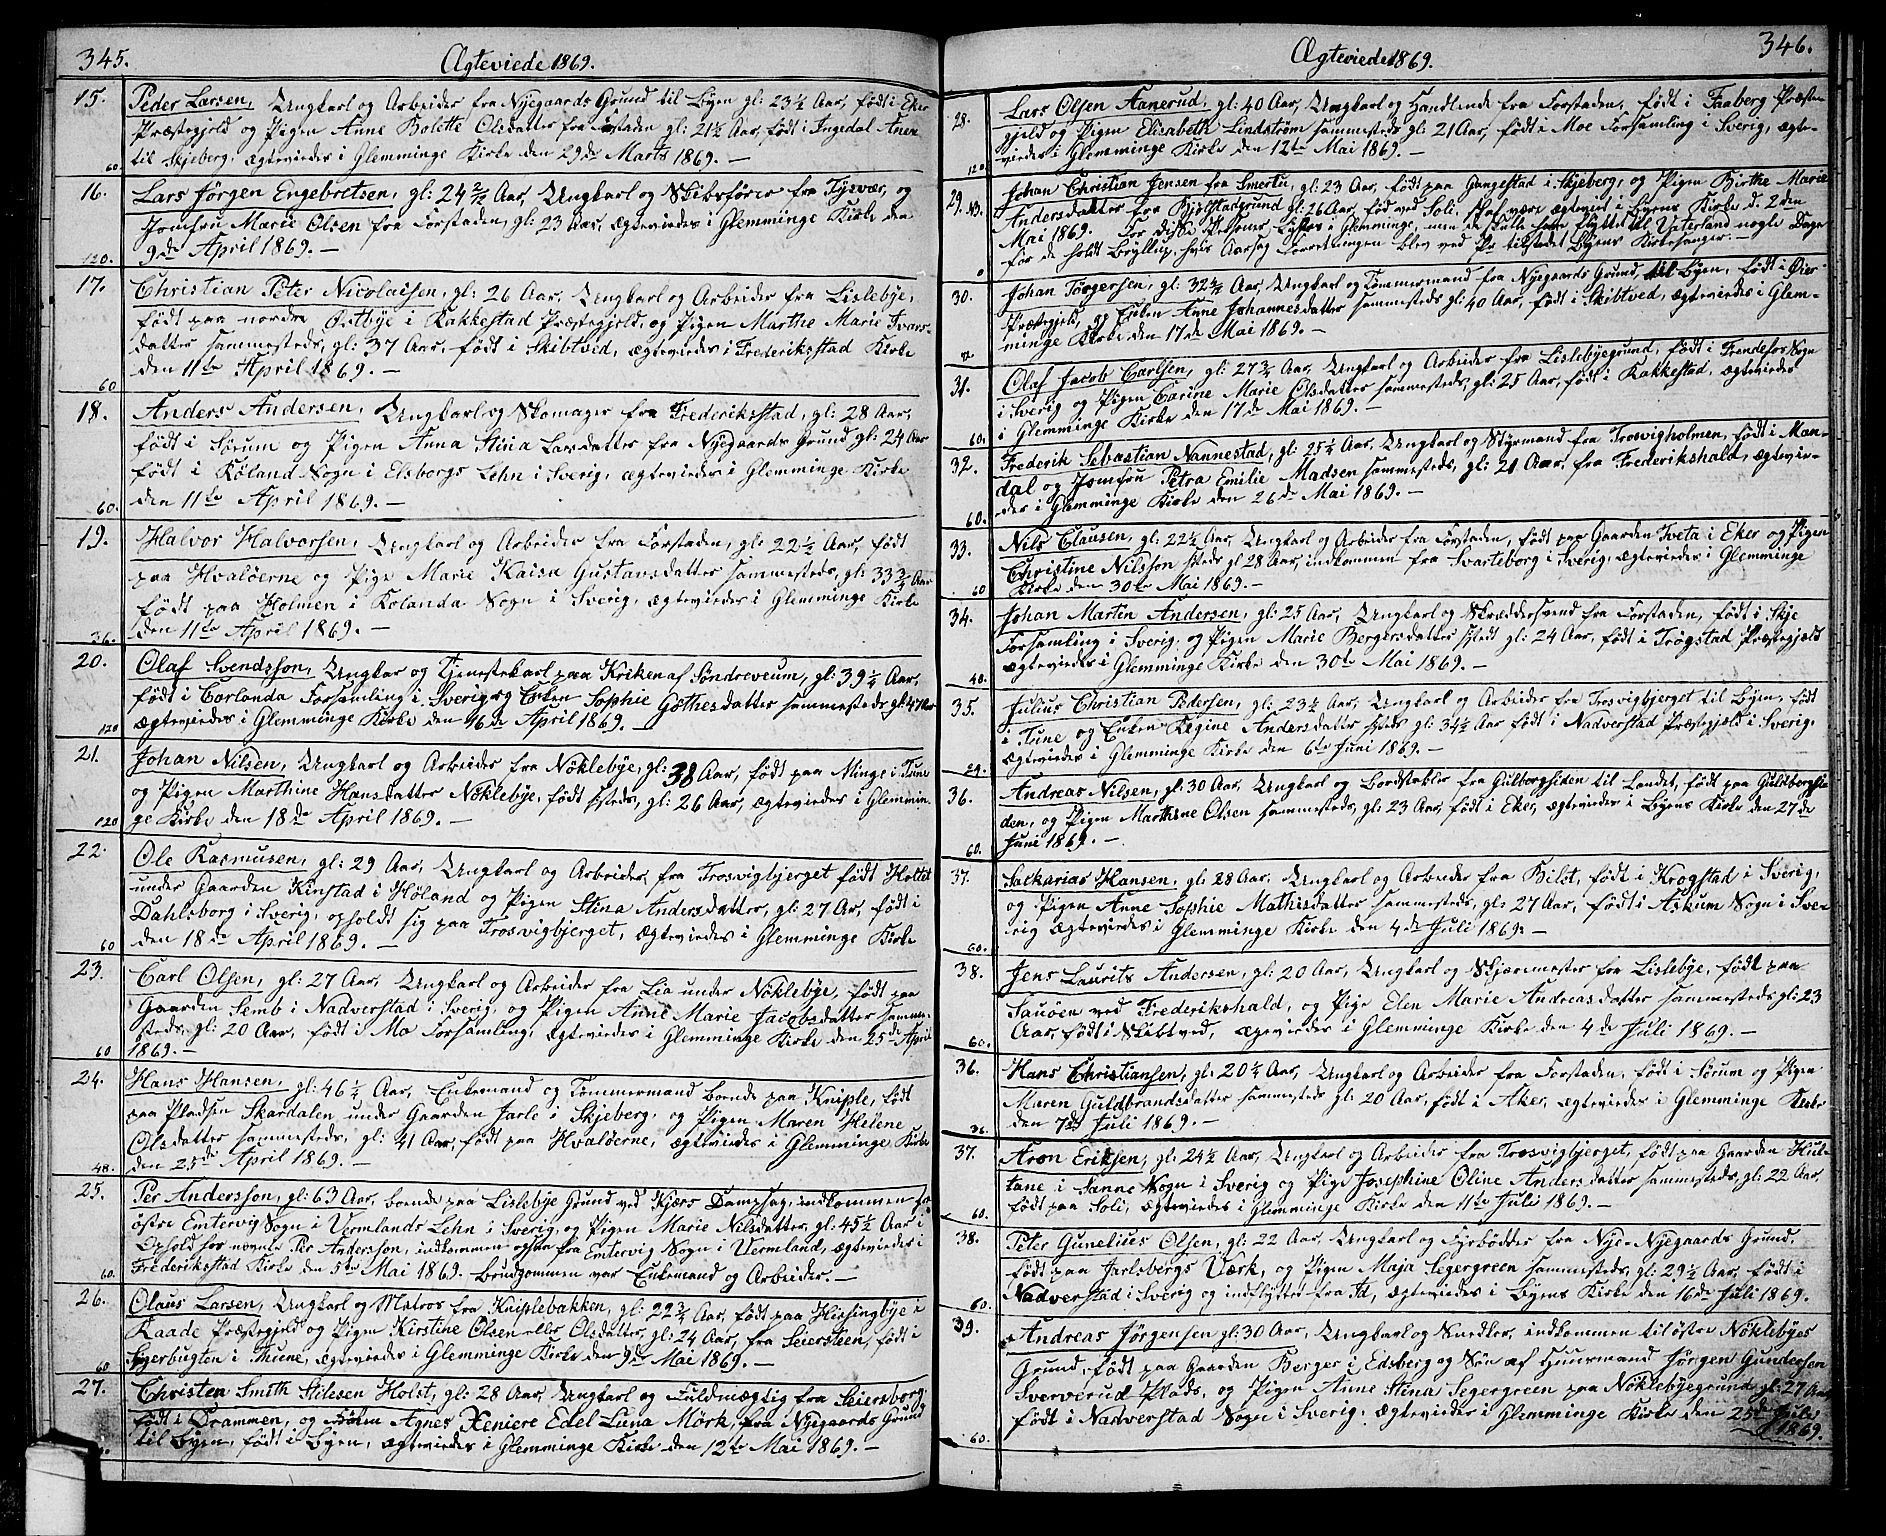 345.
Ægteviede 1869.
15. Peder Larsen, Ungkarl og Arbeider fra Nyegaards Grund til Byen gl: 23½ Aar, født i Eker
Præstegjeld og Pigen Anne Bolette Olsdatter fra Forstaden gl: 21½ Aar, født i Ingedal Anex
60. til Skjeberg, ægteviedes i Glemminge Kirke den 29de Marts 1869. —
16. Lars Jørgen Engebretsen, gl: 24 2/12 Aar, Ungkarl og Skibsfører fra Tysvær, og
Jomfru Marie Olsen fra Forstaden, gl: 23 Aar, ægteviedes i Glemminge Kirke den
120. 9de April 1869. —
17. Christian Peter Nicolaisen, gl: 26 Aar, Ungkarl og Arbeider fra Lislebye,
født paa nordre Østbye i Rakkestad Præstegjeld, og Pigen Marthe Marie Ivars-
datter sammesteds, gl: 37 Aar, født i Skibtved, ægteviedes i Frederiksstad Kirke
60 den 11te April 1869. —
18. Anders Andersen, Ungkarl og Skomager fra Frederiksstad, gl: 28 Aar,
født i Sørum og Pigen Anna Stina Larsdatter fra Nyegaards Grund, gl: 24 Aar
født i Køland Sogn i Elsborgs Lehn i Sverig, ægteviedes i Glemminge Kirke
60. den 11te April 1869. —
19. Halvor Halvorsen, Ungkarl og Arbeider fra Forstaden, gl: 22½ Aar, født
paa Hvaløerne og Pige Marie Kaisa Gustavsdatter sammesteds, gl: 33¾ Aar
født paa Holmen i Kolanda Sogn i Sverig, ægteviedes i Glemminge Kirke
36. den 11te April 1869. —
20. Olaf Svendsson, Ungkar og Tjenestekarl paa Kriken af Søndreveum, gl: 39¼ Aar,
født i Carlanda Forsamling i Sverig og Enken Sophie Göthesdatter sammesteds gl: 47 Aar
120 ægteviedes i Glemminge Kirke den 16de April 1869. —
21. Johan Nilsen, Ungkarl og Arbeider fra Nøklebye, gl: 38 Aar, født paa Minge i Tune
og Pigen Marthine Hansdatter Nøklebye, født steds, gl: 26 Aar, ægteviedes i Glemmin-
120 ge Kirke den 18de April 1869. —
22. Ole Rasmusen, gl: 29 Aar, Ungkarl og Arbeider, fra Trosvigbjerget født Hottet
under Gaarden Kinstad i Høland og Pigen Stina Andersdatter, gl: 27 Aar, født i
Dahlsborg i Sverig, opholdt sig paa Trosvigbjerget, ægteviedes i Glemminge Kirke
60 den 18de April 1869. —
23. Carl Olsen, gl: 27 Aar, Ungkarl og Arbeider fra Lia under Nøklebye, født paa
Gaarden Semb i Nadverstad i Sverig, og Pigen Anne Marie Jacobsdatter samme-
steds, gl: 20 Aar, født i Mo Forsamling, ægteviedes i Glemminge Kirke den 25de April
60 1869. —
24. Hans Hansen, gl: 46½ Aar, Enkemand og Tømmermand boende paa Kniple, født
paa Pladsen Skardalen under Gaarden Jarle i Skjeberg, og Pigen Maren Helene
Olsdatter sammesteds, gl: 41 Aar, født paa Hvaløerne, ægteviedes i Glemminge Kirke
48. den 25de April 1869. —
25. Per Andersson, gl: 63 Aar, boende paa Lislebye Grund ved Kjærs Dampsag, indkommen fra
østre Emtervig Sogn i Vermlands Lehn i Sverig, og Pigen Marie Nilsdatter, gl: 45½ Aar i
Ophold hos nævnte Per Andersson, indkommen ogsaa fra Emtervig Sogn i Vermland, ægteviedes i
60. Frederiksstad Kirke den 5te Mai 1869. Brudgommen var Enkemand og Arbeider. —
26. Olaus Larsen, Ungkarl og Matros fra Kniplebakken, gl: 22¾ Aar, født paa Huusingbye i
Raade Præstegjeld og Pigen Kirstine Olsen eller Olsdatter, gl: 24 Aar, fra Seiersteen, født i
60 Sogerbugten i Thune, ægteviedes i Glemminge Kirke den 9de Mai 1869. —
27. Christen Smith Stilesen Holst, gl: 28 Aar, Ungkarl og Fuldmægtig fra Seiersborg
født i Drammen, og Frøken Agnes Xeniere Edel Luna Mörk, fra Nyegaards Grund
til Byen, født i Byen, ægteviedes i Glemminge Kirke den 12te Mai 1869. —
346.
Ægteviede 1869.
28. Lars Olsen Aanerud, gl: 40 Aar, Ungkarl og Handlende fra Forstaden, født i Faaberg Præste-
gjeld og Pigen Elisabeth Lindstrøm sammesteds gl: 21 Aar, født i Moe Forsamling i Sverig, ægte-
120 vieedes i Glemminge Kirke den 12te Mai 1869. —
29. NB. Johan Christian Jensen fra Smertu, gl: 23 Aar, født paa Gangestad i Skjeberg, og Pigen Birthe Marie
Andersdatter fra Kjølstadgrund gl: 26 Aar, fød ved Soli, skal være ægteviet i Byens Kirke d. 2den
Mai 1869. For disse Personer lystes i Glemminge, men de skulle have flyttet til Vesterland nogle Dage
0 før de holdt Bryllup, hvis Aarsag Forretningen blev ved Pr tilstedet Byens Kirkesanger. —
30. Johan Törgersen, gl: 32¾ Aar, Ungkarl og Tømmermand fra Nyegaards Grund, til Byen, født i Øier
Præstegjeld, og Enken Anne Johannesdatter sammesteds gl: 40 Aar, født i Skibtved, ægtevieedes i Glem-
72 minge Kirke den 17de Mai 1869. —
31. Olaf Jacob Carlsen, gl: 27¾ Aar, Ungkarl og Arbeider fra Lislebyegrund, født i Frendefors Sogn
i Sverig og Pigen Carine Marie Olsdatter sammesteds, gl: 25 Aar, født i Rakkestad, ægtevieedes
60. i Glemminge Kirke den 17de Mai 1869. —
32. Frederik Sebastian Nannestad, gl: 25¼ Aar, Ungkarl og Styrmand fra Trosvigholmen, født i Man-
dal og Jomfru Petra Emilie Madsen sammesteds, gl: 21 Aar, fra Frederikshald, ægtevie-
60. des i Glemminge Kirke den 26de Mai 1869. —
33. Nils Clausen, gl: 22½ Aar, Ungkarl og Arbeider fra Forstaden, født paa Gaarden Tveta i Eker og Pigen
Christine Nilsson steds gl 28 Aar, indkommen fra Svarteborg i Sverig, ægtevieedes i Glemminge
60 Kirke den 30te Mai 1869. —
34. Johan Martin Andersen, gl: 25 Aar, Ungkarl og Skræddersvend fra Forstaden, født i Skje
Forsamling i Sverig, og Pigen Marie Bergersdatter steds gl: 24 Aar, født i Trøgstad Præstegjeld
40. ægtevieedes i Glemminge Kirke den 30te Mai 1869. —
35. Julius Christian Pedersen, gl: 23½ Aar, Ungkarl og Arbeider fra Trosvigbjerget til Byen, født
i Tune og Enken Regine Andersdatter steds gl: 34½ Aar født i Nadverstad Præstegjeld i Sverig,
24. ægtevieedes i Glemminge Kirke den 6te Juni 1869. —
36. Andreas Nilsen, gl: 30 Aar, Ungkarl og Bordstabler fra Gulborgsiden til Landet, født paa Guldborgsi-
den, og Pigen Marthine Olsen sammesteds, gl: 23 Aar, født i Eker, ægtevieedes i Byens Kirke den 27de
60. Juni 1869. —
37. Sackarias Hansen, gl: 28 Aar, Ungkarl og Arbeider fra Bilet, født i Krogstad i Sverig,
og Pigen Anne Sophie Mathisdatter sammesteds, gl: 27 Aar, født i Askum Sogn i Sve-
60. rig ægtevieedes i Glemminge Kirke den 4de Juli 1869. —
38. Jens Laurits Andersen, gl: 20 Aar, Ungkarl og Skjærmester fra Lislebye, født paa
Sauøen ved Frederikshald, og Pige Elen Marie Andreasdatter sammesteds, gl: 23
60. Aar, født i Skibtved, ægtevieedes i Glemminge Kirke den 4de Juli 1869. —
36. Hans Christiansen, gl: 20½ Aar, Ungkarl og Arbeider fra Forstaden, født i Sørum og Pigen
Maren Guldbrandsdatter sammesteds gl: 20 Aar, født i Aker, ægtevieedes i Glemminge Kirke
36. den 7de Juli 1869. —
37. Aron Eriksen, gl: 24½ Aar, Ungkarl og Arbeider fra Trosvigbjerget, født paa Gaarden Hul-
tane i Sanne Sogn i Sverig og Pige Josephine Oline Andersdatter sammesteds, gl: 22 Aar
60. født paa Soli, ægtevieedes i Glemminge Kirke den 11te Juli 1869. —
38. Peter Gunelius Olsen, gl: 22 Aar, Ungkarl og Fyrbødder fra Nye-Nyegaards Grund,
født paa Jarlsbergs Værk, og Pigen Maja Segergreen sammesteds, gl: 29½ Aar, født i
60. Nadverstad i Sverig og indflyttet fra Id, ægtevieedes i Byens Kirke den 16de Juli 1869.
39. Andreas Jørgensen gl: 30 Aar, Ungkarl og Smedler, indkommen til østre Nøklebyes
Grund, født paa Gaarden Berger i Edsberg og Søn af Huusmand Jørgen Gundersen
Sververud Plads, og Pigen Anne Stina Segergreen paa Nøklebyegrund gl: 27 Aar
født i Nadverstad Sogn i Sverig, ægtevieedes i Glemminge Kirke den 25de Juli
60. 1869.